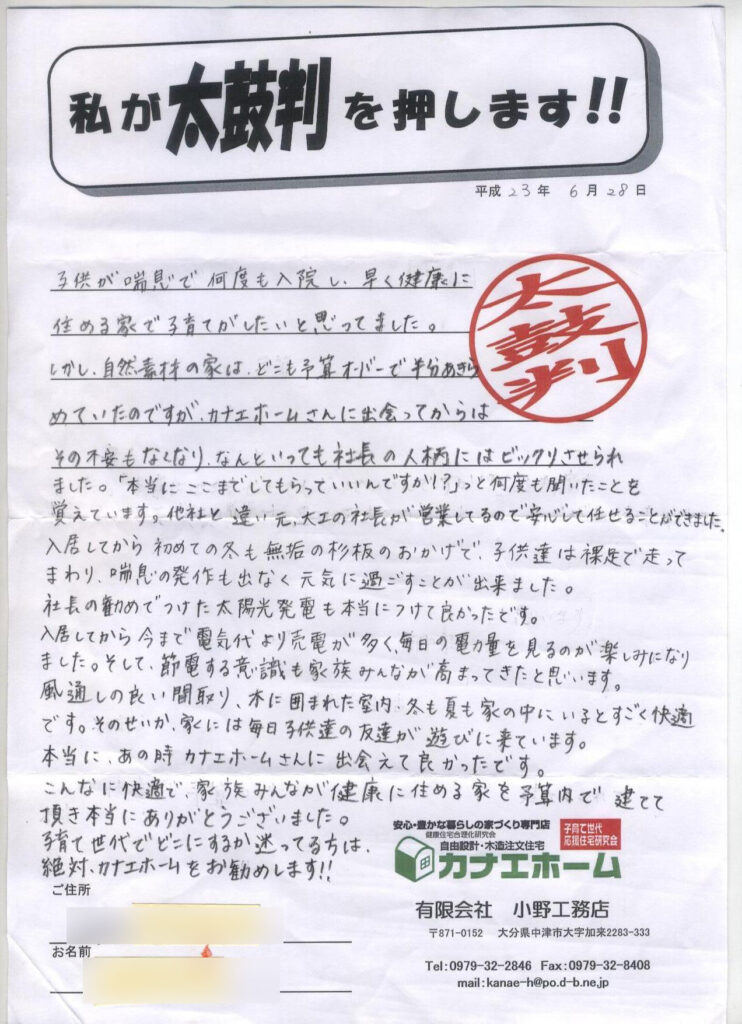 私が太鼓判を押します!!
平成23年 6月28日
子供が喘息で何度も入院し、早く健康に
住める家で子育てがしたいと思ってました。
しかし、自然素材の家は、どこも予算オーバーで半分あきら
めていたのですが、カナエホームさんに出会ってからは
その不安もなくなり、なんといっても社長の人柄にはビックリさせられ
ました。「本当にここまでしてもらっていいんですか!?」っと何度も聞いたことを
覚えています。他社と違い元、大工の社長が営業してるので安心して任せることができました。
入居してから初めての冬も無垢の杉板のおかげで、子供達は裸足で走って
まわり、喘息の発作も出なく元気に過ごすことが出来ました。
社長の勧めでつけた太陽光発電も本当につけて良かったです。
入居してから今まで電気代より売電が多く、毎日の電力量を見るのが楽しみになり
ました。そして、節電する意識も家族みんなが高まってきたと思います。
風通しの良い間取り、木に囲まれた室内・冬も夏も家の中にいるとすごく快適
です。そのせいか、家には毎日子供達の友達が遊びに来ています。
本当に、あの時カナエホームさんに出会えて良かったです。
こんなに快適で、家族みんなが健康に住める家を予算内で建てて
頂き本当にありがとうございました。
子育て世代でどこにするか迷ってる方は、
絶対、カナエホームをお勧めします!!
太鼓判
安心・豊かな暮らしの家づくり専門店
健康住宅合理化研究会
自由設計・木造注文住宅
子育て世代
応援住宅研究会
カナエホーム
有限会社 小野工務店
〒871-0152 大分県中津市大字加来2283-333
Tel:0979-32-2846 Fax:0979-32-8408
mail:kanae-h@po.d-b.ne.jp
ご住所
お名前